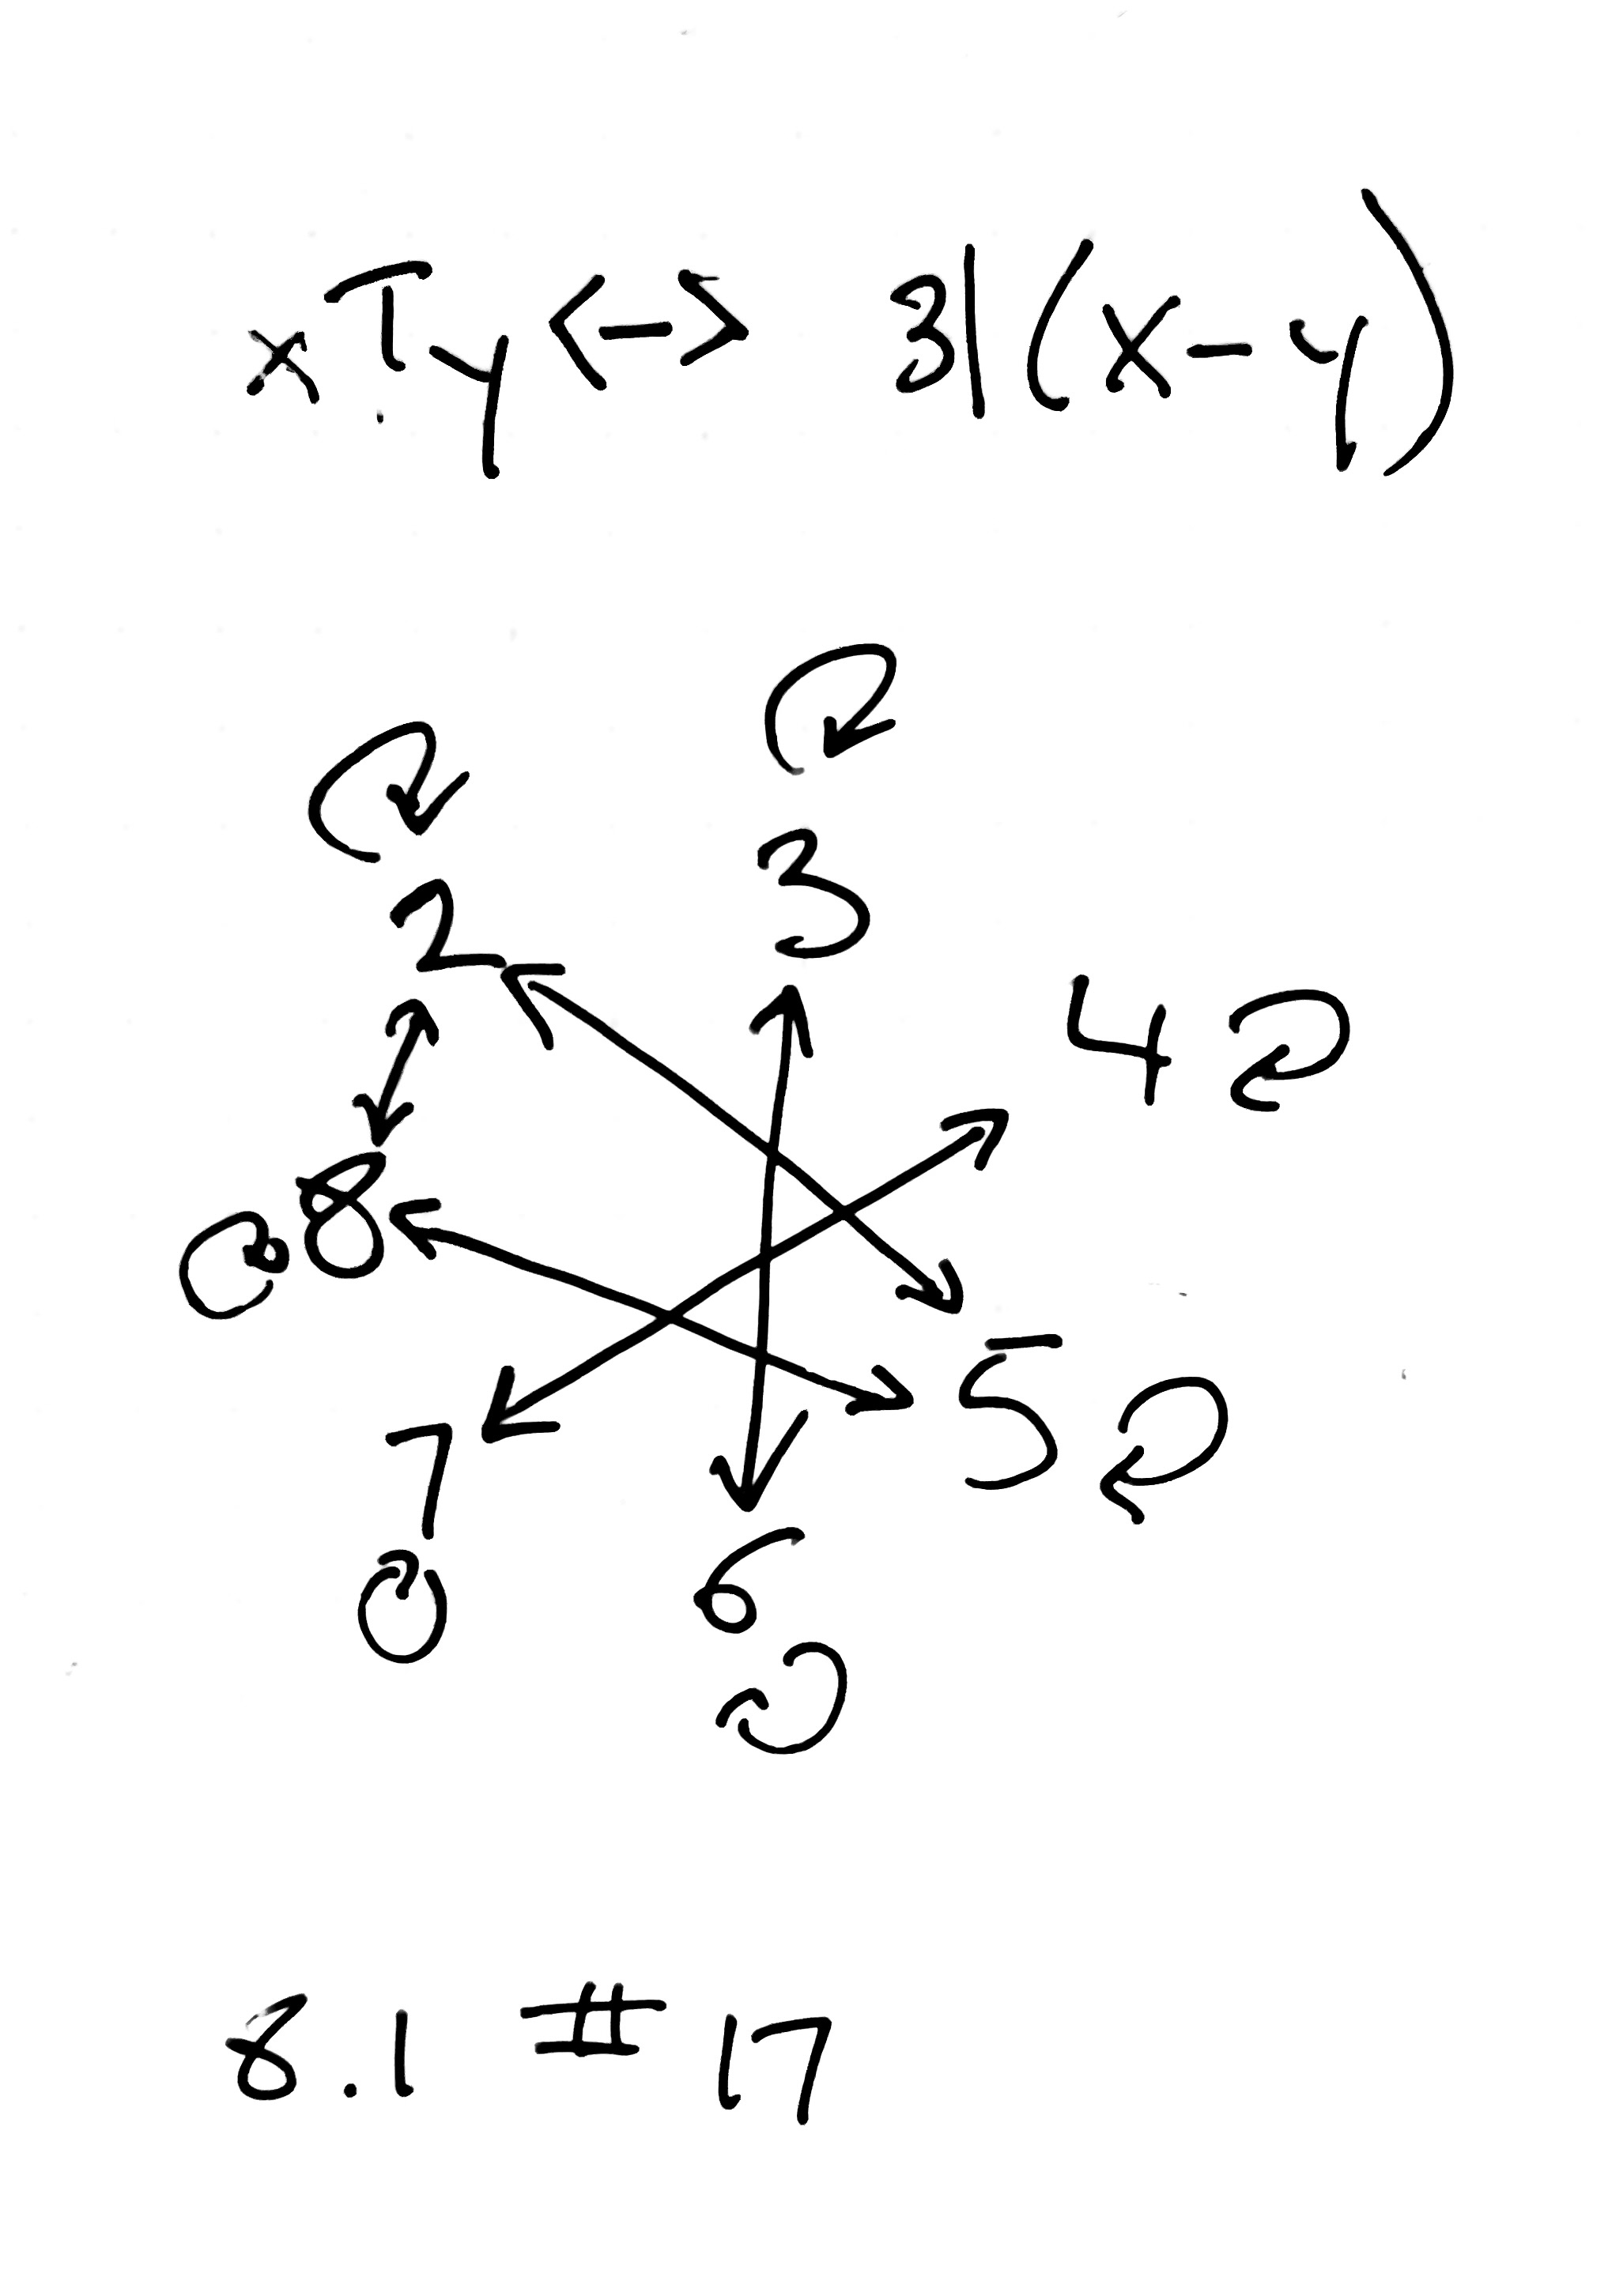 x T y <-> 3|(x-y)
3
2
4
8
5
7
6
8.1 # 17